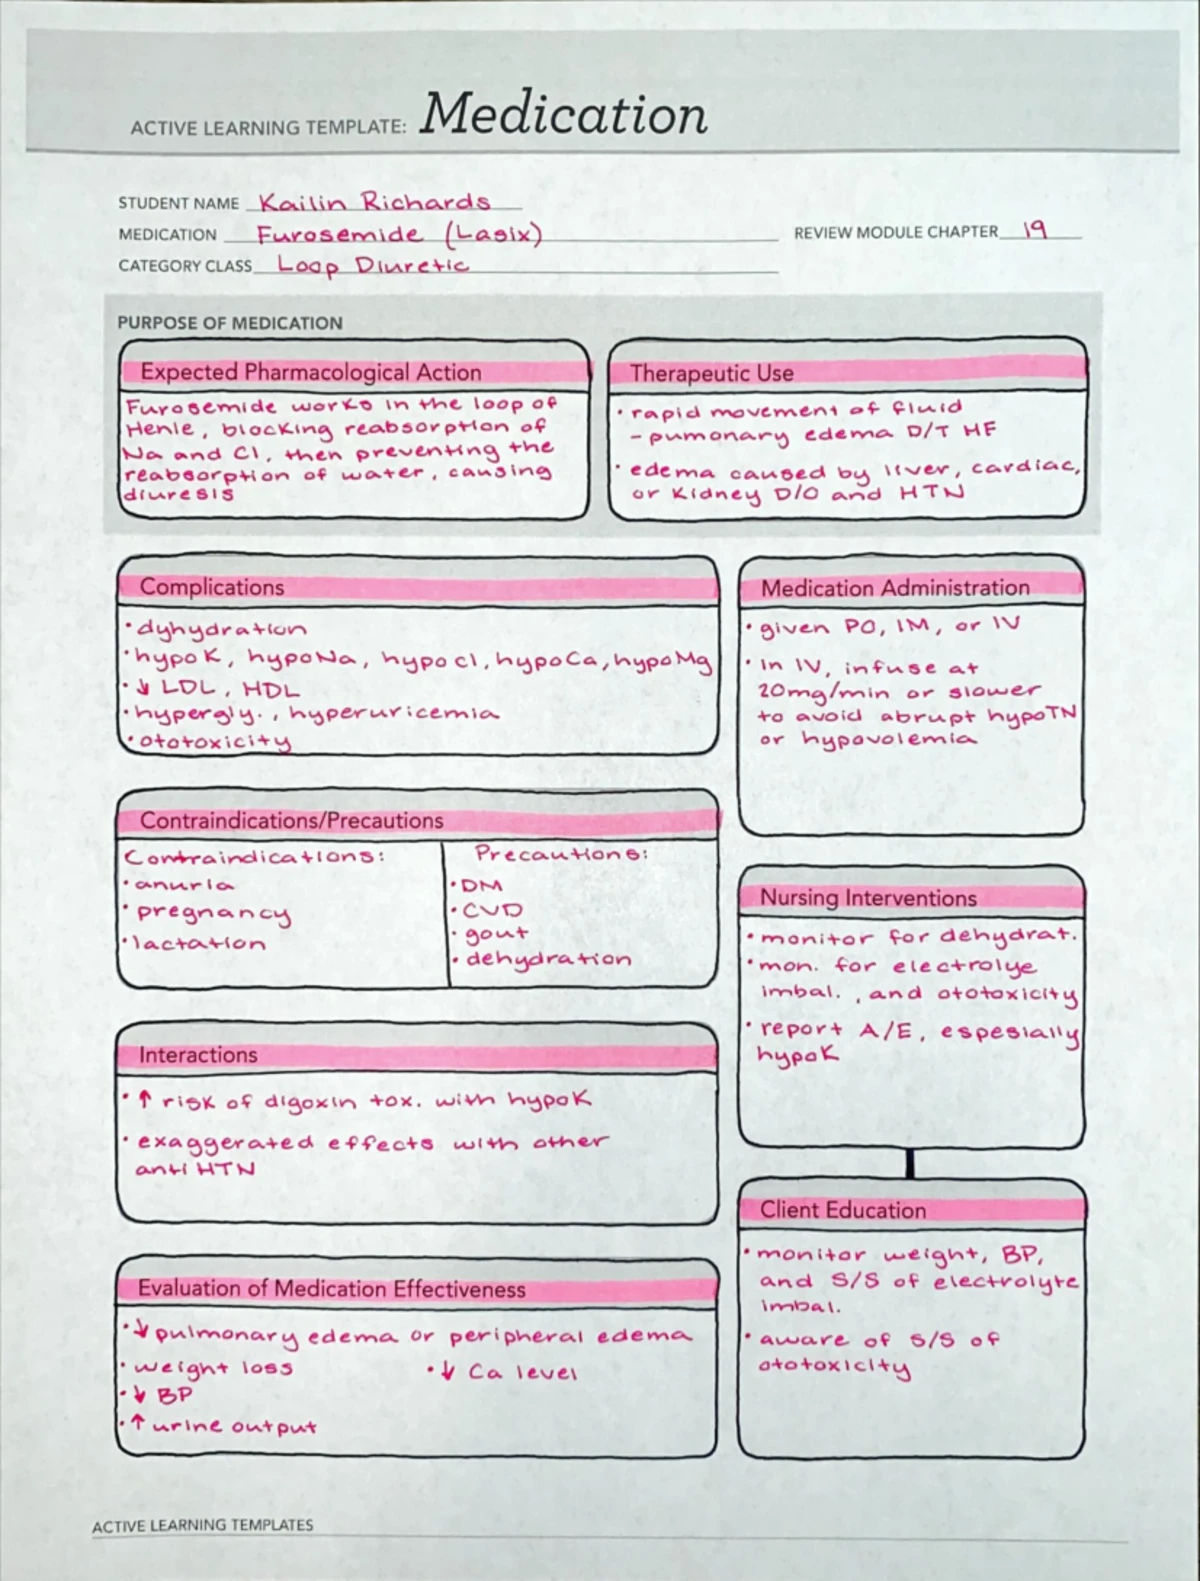 ACTIVE LEARNING TEMPLATE: Medication
STUDENT NAME Kailin Richards
MEDICATION Furosemide (Lasix)
REVIEW MODULE CHAPTER 19
CATEGORY CLASS Loop Diuretic
PURPOSE OF MEDICATION
Expected Pharmacological Action
Furosemide works in the loop of
Henle, blocking reabsorption of
Na and Cl, then preventing the
reabsorption of water, causing
diuresis
Therapeutic Use
• rapid movement of fluid
- pumonary edema D/T HF
• edema caused by liver, cardiac,
or Kidney D/O and HTN
Complications
• dyhydration
• hypoK, hypoNa, hypocl, hypoCa, hypoMg
• ↓ LDL, HDL
• hypergly., hyperuricemia
• ototoxicity
Medication Administration
• given PO, IM, or IV
• In IV, infuse at
20mg/min or slower
to avoid abrupt hypoTN
or hypovolemia
Contraindications/Precautions
Contraindications:
• anuria
• pregnancy
• lactation
Precautions:
• DM
• CVD
• gout
• dehydration
Nursing Interventions
• monitor for dehydrat.
• mon. for electrolye
imbal., and ototoxicity
• report A/E, espesially
hypoK
Interactions
• ↑ risk of digoxin tox. with hypoK
• exaggerated effects with other
anti HTN
Client Education
• monitor weight, BP,
and S/S of electrolyte
imbal.
• aware of S/S of
ototoxicity
Evaluation of Medication Effectiveness
• ↓ pulmonary edema or peripheral edema
• weight loss
• ↓ Ca level
• ↓ BP
• ↑ urine output
ACTIVE LEARNING TEMPLATES